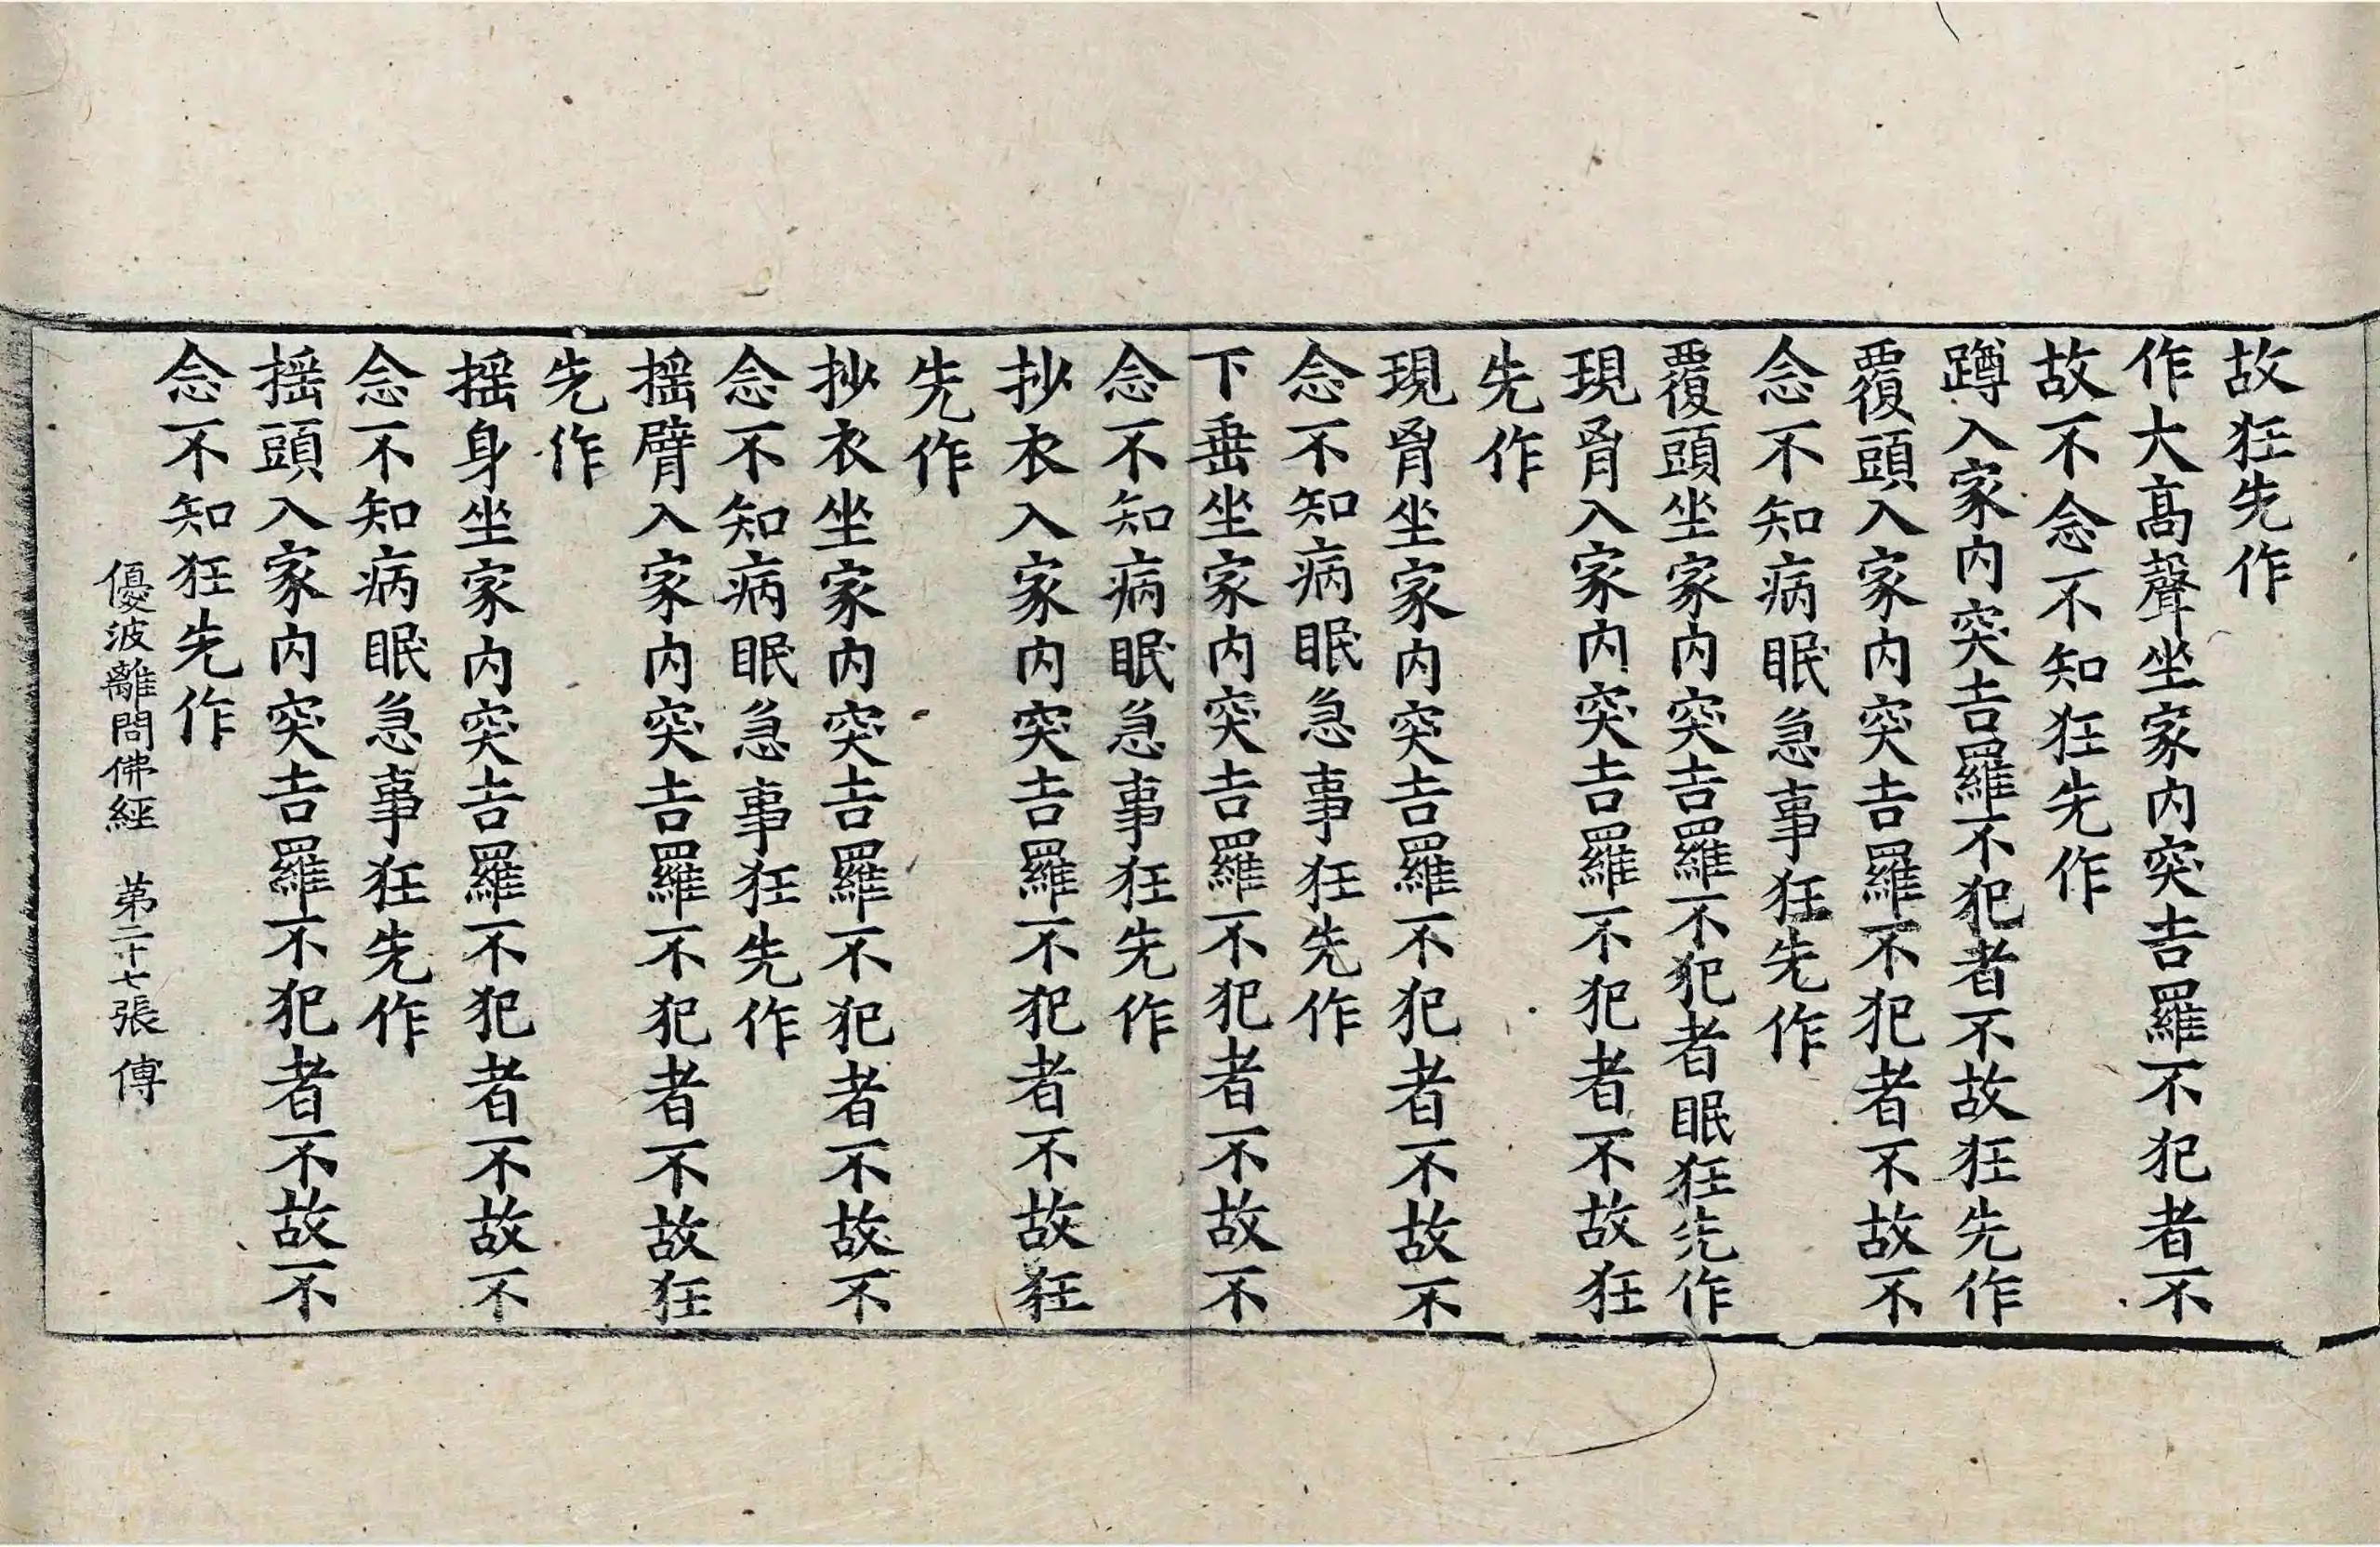 故狂先作
作大高聲坐家内突吉羅不犯者不
故不念不知狂先作
蹲入家内突吉羅不犯者不故狂先作
覆頭入家内突吉羅不犯者不故不
念不知病眠急事狂先作
覆頭坐家内突吉羅不犯者眠狂先作
現胷入家内突吉羅不犯者不故狂
先作
現胷坐家内突吉羅不犯者不故不
念不知病眠急事狂先作
下垂坐家内突吉羅不犯者不故不
念不知病眠急事狂先作
抄衣入家内突吉羅不犯者不故狂
先作
抄衣坐家内突吉羅不犯者不故不
念不知病眠急事狂先作
揺臂入家内突吉羅不犯者不故狂
先作
揺身坐家内突吉羅不犯者不故不
念不知病眠急事狂先作
揺頭入家内突吉羅不犯者不故不
念不知狂先作
優波離問佛經 第二十七張 傅